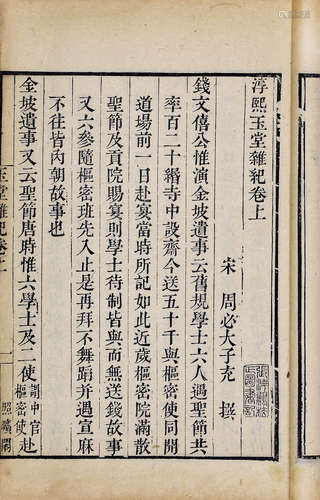 淳熙玉堂雜紀卷上
宋 周必大子充 撰
錢文僖公惟演金坡遺事云舊規學士六人遇聖節共
率百二十緡寺中設齋今送五十千與樞密使同開
道場前一日赴宴當時所記如此近歲樞密院滿散
聖節及貢院賜宴則學士待制皆與而無送錢故事
又六參隨樞密班先入止是再拜不舞蹈并遇宣麻
不往皆內朝故事也
金坡遺事又云聖節唐時惟六學士及二使謂中官樞密使赴
玉堂雜紀卷上
照曠閣